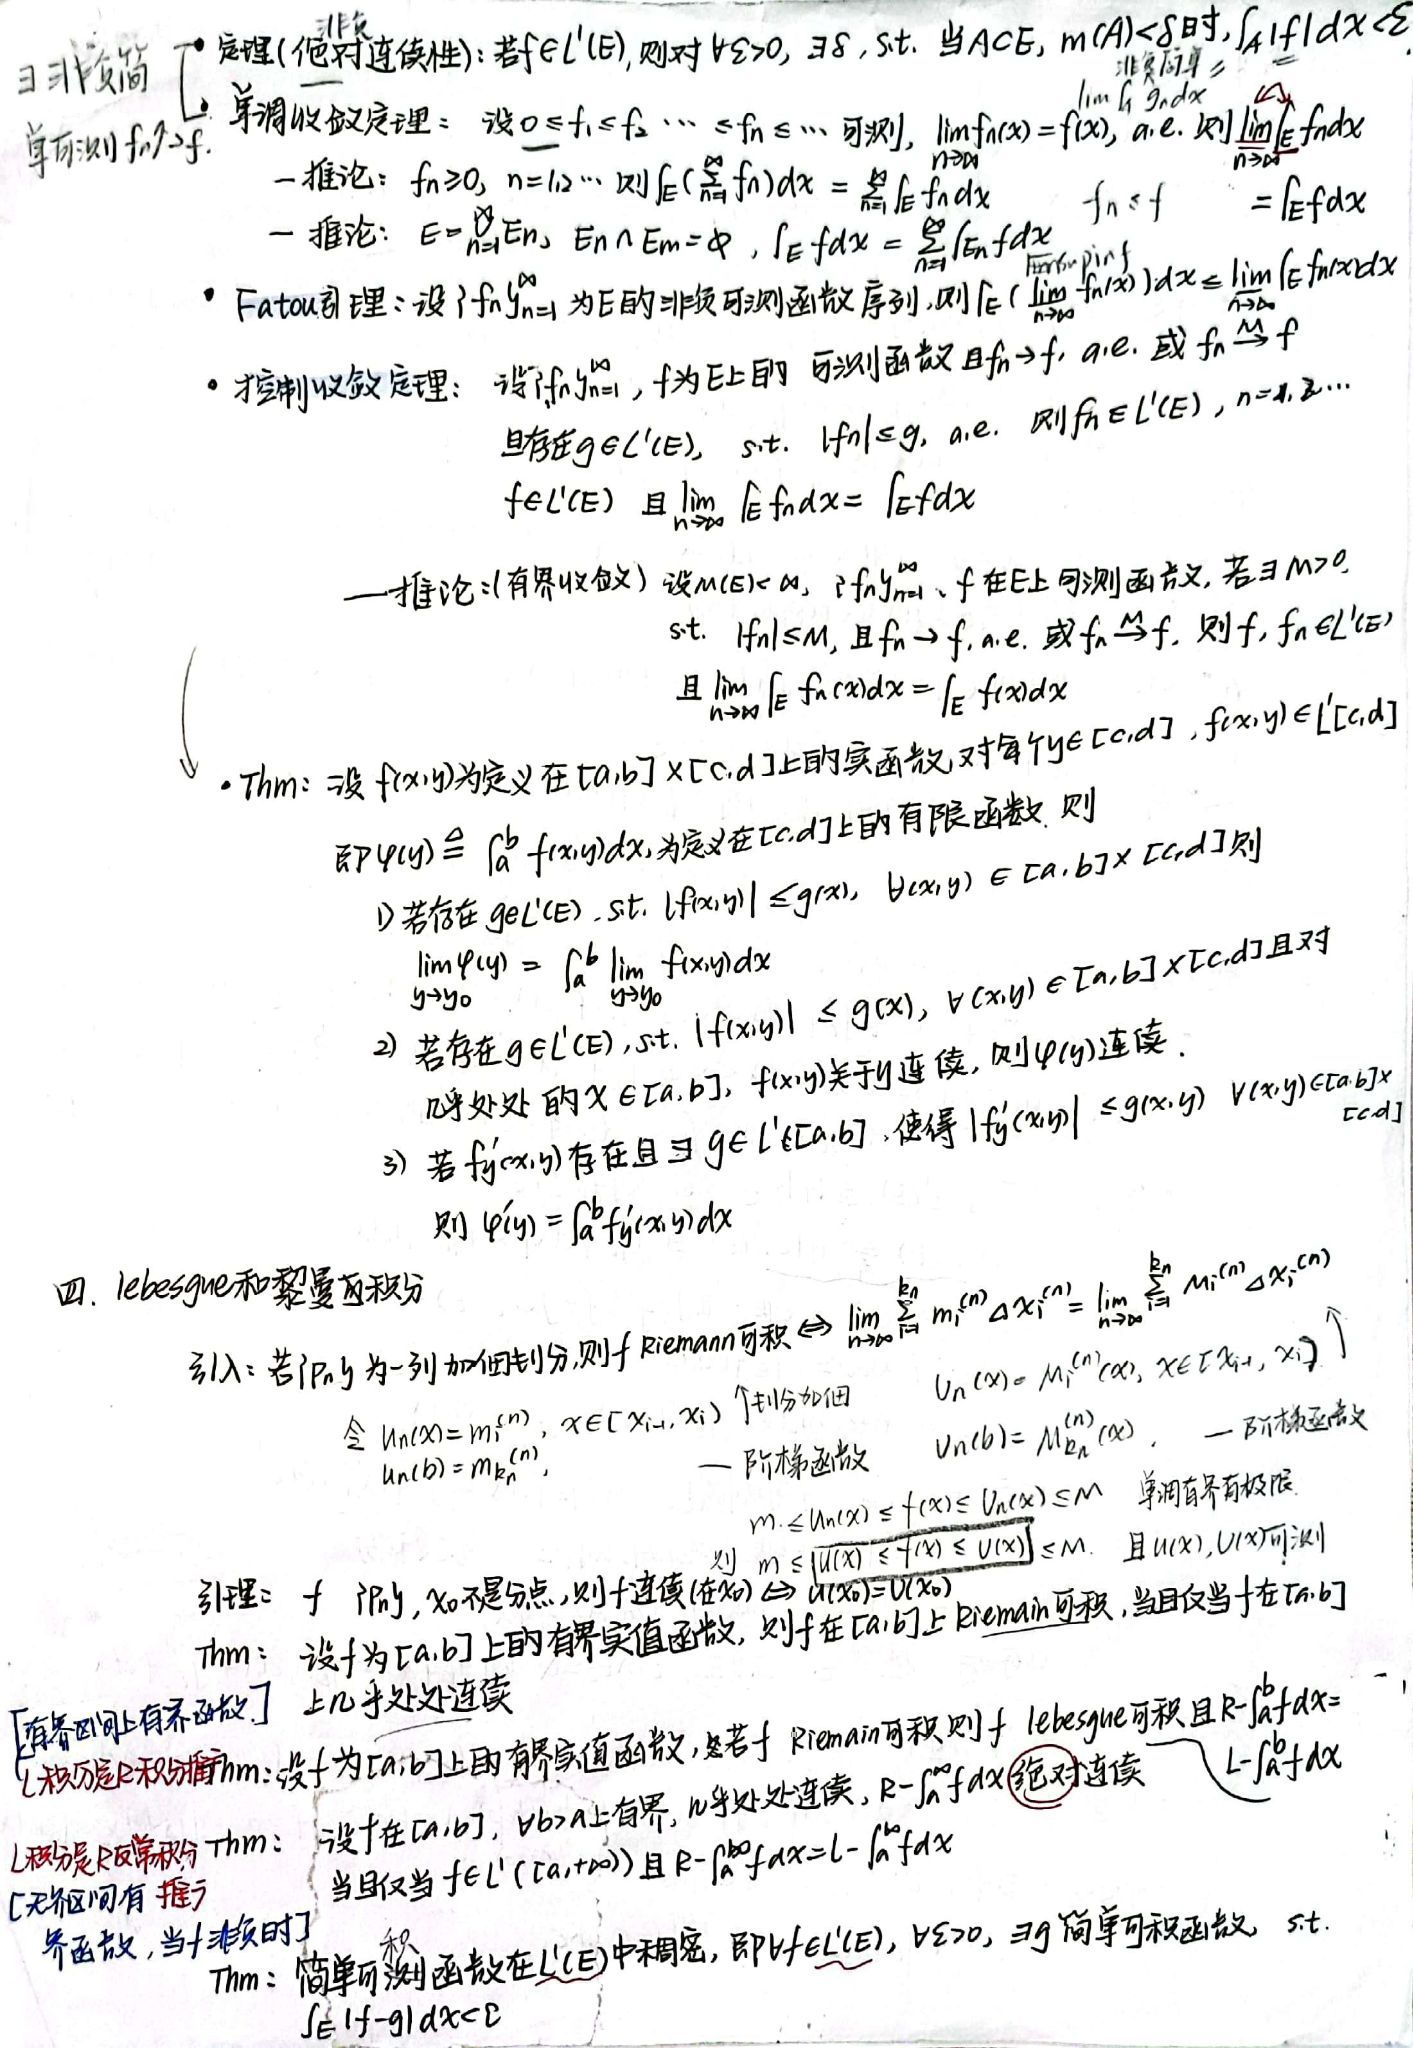 ∃非负简
单可测 fn↗→f.
非负
• 定理(绝对连续性): 若f∈L'(E), 则对 ∀ε>0, ∃δ, s.t. 当A⊂E, m(A)<δ时, ∫_A |f| dx<ε.
非负简单
lim ∫ gndx
• 单调收敛定理: 设0≤f₁≤f₂ ⋯ ≤fn≤⋯ 可测, lim_{n→∞} fn(x)=f(x), a.e. 则 lim_{n→∞} ∫_E fndx
— 推论: fn≥0, n=1,2⋯ 则∫_E(∑_{n=1}^∞ fn)dx = ∑_{n=1}^∞ ∫_E fndx fn≤f =∫_E fdx
— 推论: E=⋃_{n=1}^∞ En, En∩Em=φ, ∫_E fdx = ∑_{n=1}^∞ ∫_{En} fdx
• Fatou引理: 设{fn}_{n=1}^∞ 为E的非负可测函数序列, 则∫_E ( lim_{n→∞} fn(x) )dx ≤ lim_{n→∞} ∫_E fn(x)dx
• 控制收敛定理: 设{fn}_{n=1}^∞, f为E上的 可测函数且fn→f, a.e. 或 fn –M→ f
且存在g∈L'(E), s.t. |fn|≤g, a.e. 则fn∈L'(E), n=1,2⋯
f∈L'(E) 且 lim_{n→∞} ∫_E fndx= ∫_E fdx
—推论:(有界收敛) 设M(E)<∞, {fn}_{n=1}^∞、f 在E上可测函数, 若∃M>0,
s.t. |fn|≤M, 且fn→f, a.e. 或fn –M→ f, 则f, fn∈L'(E)
且 lim_{n→∞} ∫_E fn(x)dx=∫_E f(x)dx
• Thm: 设 f(x,y)为定义在[a,b]×[c,d]上的实函数, 对每个y∈[c,d], f(x,y)∈L'[c,d]
即φ(y)≜ ∫_a^b f(x,y)dx, 为定义在[c,d]上的有限函数, 则
1) 若存在g∈L'(E), s.t. |f(x,y)| ≤g(x), ∀(x,y) ∈[a,b]×[c,d]则
lim_{y→y₀} φ(y) = ∫_a^b lim_{y→y₀} f(x,y)dx
2) 若存在g∈L'(E), s.t. |f(x,y)| ≤ g(x), ∀(x,y)∈[a,b]×[c,d]且对
几乎处处的x∈[a,b], f(x,y)关于y连续, 则φ(y)连续.
3) 若 f'y(x,y)存在且∃ g∈L'[a,b], 使得|f'y(x,y)| ≤g(x,y) ∀(x,y)∈[a,b]×
[c,d]
则 φ'(y)=∫_a^b f'y(x,y)dx
四. lebesgue和黎曼可积分
引入: 若{Pn}为一列加细划分, 则f Riemann可积⇔ lim_{n→∞} ∑_{i=1}^{kn} mi^(n) Δxi^(n) = lim_{n→∞} ∑_{i=1}^{kn} Mi^(n) Δxi^(n)
令 un(x)=mi^(n), x∈[xi-1, xi) ↑划分加细 Un(x)=Mi^(n)(x), x∈[xi-1, xi) ↑
un(b)=m_{kn}^(n), — 阶梯函数 Un(b)=M_{kn}^(n)(x). — 阶梯函数
m≤un(x)≤f(x)≤Un(x)≤M 单调有界有极限.
则 m≤u(x)≤f(x)≤U(x)≤M. 且u(x), U(x)可测
引理: f {Pn}, x₀不是分点, 则f连续(在x₀)⇔u(x₀)=U(x₀)
Thm: 设f为[a,b]上的有界实值函数, 则f在[a,b]上Riemain可积, 当且仅当f在[a,b]
上几乎处处连续
[有界区间上有界函数.]
L积分是R积分推广
Thm: 设f为[a,b]上的有界实值函数, 若f Riemain可积则f lebesgue可积且R-∫_a^b fdx=
L-∫_a^b fdx
Thm: 设f在[a,b], ∀b>a上有界, 几乎处处连续, R-∫_a^∞ fdx绝对连续
当且仅当 f∈L'([a,+∞))且R-∫_a^∞ fdx=L-∫_a^∞ fdx
L积分是R反常积分
[无界区间有 推广
界函数, 当f非负时]
积
Thm: 简单可测函数在L'(E)中稠密, 即∀f∈L'(E), ∀ε>0, ∃g简单可积函数 s.t.
∫_E |f-g|dx<ε